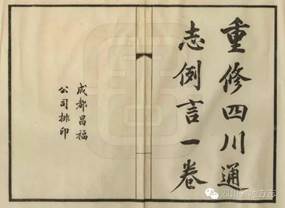 重修四川通
志例言一卷
成都昌福
公司排印